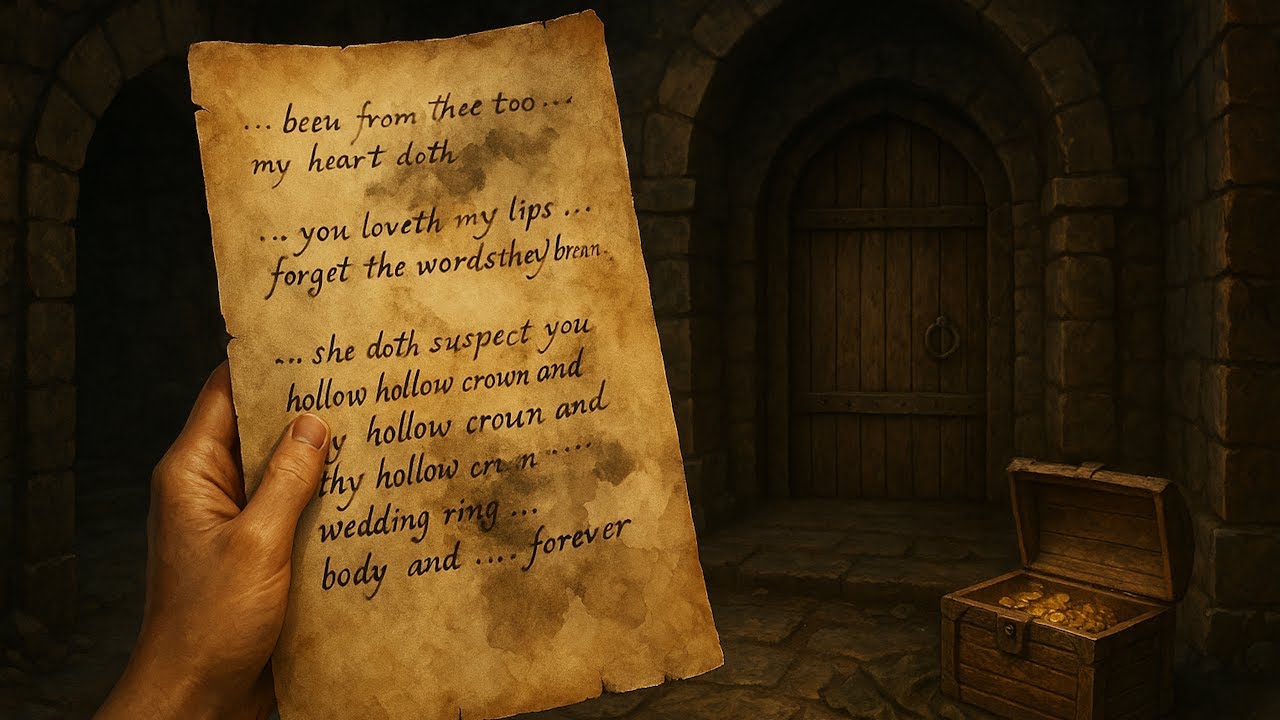 ... beeu from thee too ...
my heart doth
... you loveth my lips ...
forget the wordsthey
... she doth suspect you
hollow hollow crown and
y hollow croun and
thy hollow cr n ....
wedding ring ...
body and .... forever